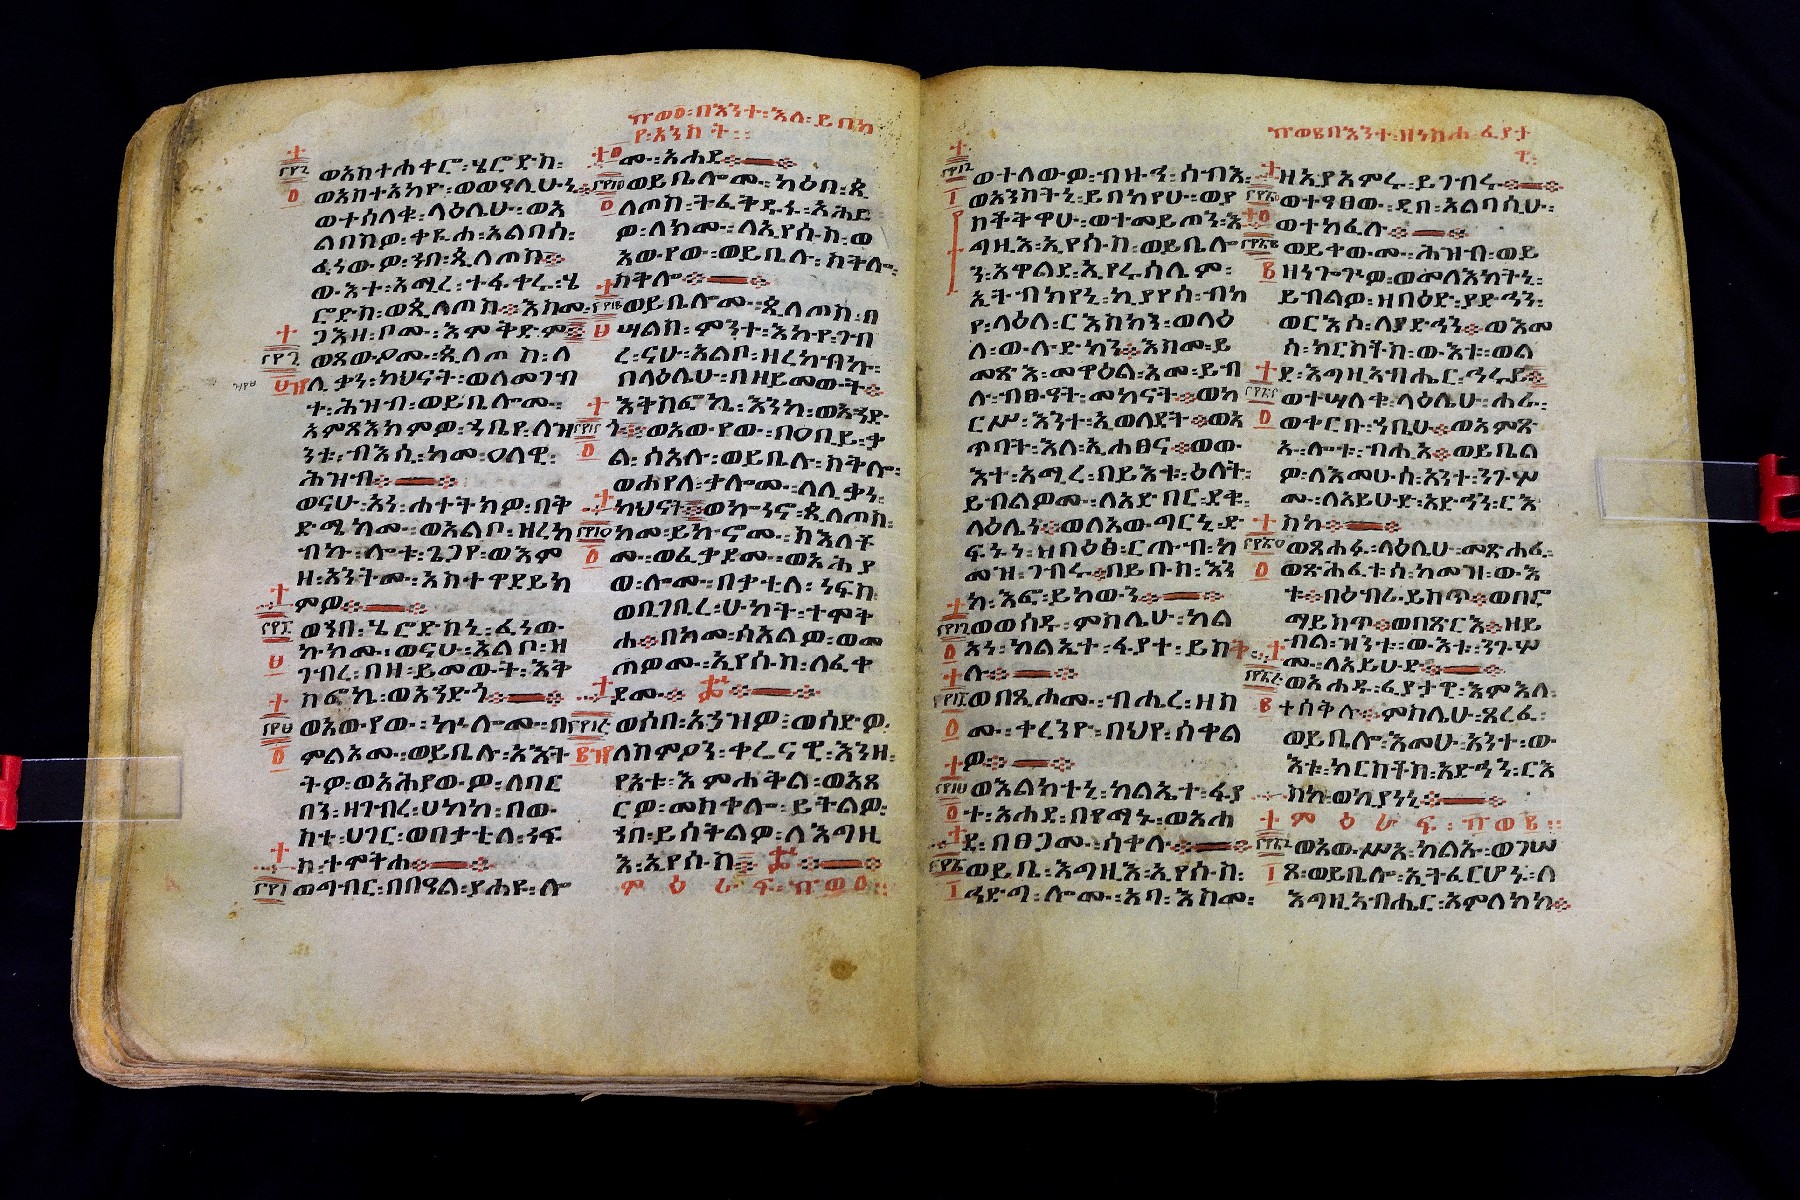 ወአስተሐቀሮ፡ሄሮድስ፡
ወአስተአከዮ፡ወወዓሊሁ፡ኒ
ወተሳለቁ፡ላዕሌሁ፡ወአ
ልበስዎ፡ቀይሐ፡አልባሰ፡
ፈነውዎ፡ኀበ፡ጲላጦስ፨
ውእተ፡አሚረ፡ተፋቀሩ፡ሄ
ሮድስ፡ወጲላጦስ፨እስመ፡
ጋእዘ፡ቦሙ፡እምቅድም፨
ወጸውዖሙ፡ጲላጦስ፡ለ
ሊቃነ፡ካህናት፡ወለመገብ
ተ፡ሕዝብ፡ወይቤሎሙ፡
አምጻእክምዎ፡ኀቤየ፡ለዝ
ንቱ፡ብእሲ፡ከመ፡ዐላዊ፡
ሕዝብ፨
ወናሁ፡አነ፡ሐተትክዎ፡በቅ
ድሜክሙ፡ወአልቦ፡ዘረከ
ብኩ፡ሎቱ፡ጌጋየ፡ወእም
ዘ፡አንትሙ፡አስተዋደይክ
ምዎ፨
ወኀበ፡ሄሮድስኒ፡ፈነው
ኩክሙ፡ወናሁ፡አልቦ፡ዘ
ገብረ፡በዘ፡ይመውት፡እቅ
ስፎኬ፡ወአኅድጎ፨
ወአውየው፡ኵሎሙ፡በ
ምልኦሙ፡ወይቤሉ፡አእት
ትዎ፡ወአሕየውዎ፡ለበር
በን፡ዘገብረ፡ሀከከ፡በው
ስተ፡ሀገር፡ወበታቲለ፡ነፍ
ስ፡ተሞቅሐ፨
ወግብር፡በበዓል፡ያሐዩ፡ሎ
፹ወ፬፡በእንተ፡እለ፡ይበከ
ያ፡አንስት፡፡
ሙ፡አሐደ፨
ወይቤሎሙ፡ካዕበ፡ጲ
ላጦስ፡ትፈቅዱኑ፡አሕይ
ዎ፡ለክሙ፡ለኢየሱስ፡ወ
አውየው፡ወይቤሉ፡ስቅሎ፡
ስቅሎ፨
ወይቤሎሙ፡ጲላጦስ፡በ
ሣልስ፡ምንተ፡እኩየ፡ገብ
ረ፡ናሁ፡አልቦ፡ዘረከብኩ፡
በላዕሌሁ፡በዘይመውት፨
እትቅሰፎኬ፡እንከ፡ወአኅድ
ጎ፨ወአውየው፡በዐቢይ፡ቃ
ል፡ሰአሉ፡ወይቤሉ፡ስቅሎ፡
ወሐየለ፡ቃሎሙ፡ለሊቃነ፡
ካህናት፨ወኰነኖ፡ጲላጦስ፡
ከመ፡ይኩኖሙ፡ስእለቶ
ሙ፡ወፈታደሙ፡ወአሕያ
ወ፡ሎሙ፡በቀቲለ፡ነፍስ፡
ወበገቢረ፡ሁከት፡ተሞቅ
ሐ፨በከመ፡ሰአልዎ፡ወመ
ጠወሙ፡ኢየሱስ፡ለፈቀ
ደሙ፨
ወሶበ፡አኀዝዎ፡ወሰድዎ፡
ለስምዖን፡ቀሬናዊ፡እንዘ፡
የአቱ፡እምሐቅል፡ወአጾ
ርዎ፡መስቀሎ፡ይትልዎ፡
ኀበ፡ይሰትልዎ፡ለእግዚ
እ፡ኢየሱስ፨
ምዕራፍ፡፹ወ፬፡፡
ወተለውዎ፡ብዙኃ፡ሰብእ፡
ወአንስትኒ፡ይበክየሁ፡ወያ
ስቆቅዋሁ፡ወተመይጦን፡እ
ግዚእ፡ኢየሱስ፡ወይቤሎ
ን፡አዋልደ፡ኢየሩሳሌም፡
ኢትብክየኒ፡ኪያየሰ፡ብክ
ያ፡ላዕለ፡ርእስክን፡ወላዕ
ለ፡ውሉድክን፨እስመ፡ይ
መጽእ፡መዋዕል፡አመ፡ይብ
ሉ፡ብፁዓት፡መካናት፨ወከ
ርሥ፡እንተ፡ኢወለደት፨ወአ
ጥባት፡እለ፡ኢሐፀና፨ወው
እተ፡አሚረ፡በይእቲ፡ዕለት፡
ይብልዎሙ፡ለአድበር፡ደቁ፡
ላዕሌነ፨ወለአውግርኒ፡ድ
ፍኑነ፡ዘበዕፅ፡ርጡብ፡ከ
መዝ፡ገብሩ፨በይቡስ፡እን
ከ፡እፎ፡ይከውን፨
ወወሰዱ፡ምስሌሁ፡ካል
አነ፡ክልኤተ፡ፈያተ፡ይስቅ
ሉ፨
ወበጺሖሙ፡ብሔረ፡ዘስ
ሙ፡ቀራንዮ፡በህየ፡ሰቀል
ዎ፨
ወእልክተኒ፡ክልኤተ፡ፈያ
ተ፡አሐደ፡በየማኑ፡ወአሐ
ደ፡በፀጋሙ፡ሰቀሉ፨
ወይቤ፡እግዚእ፡ኢየሱስ፡
ኅድግ፡ሎሙ፡አባ፡እስመ፡
፹ወ፭በእንተ፡ዘነስሐ፡ፈያታ
ዊ፡
ዘኢያአምሩ፡ይገብሩ፨
ወተዓፀው፡ዲበ፡አልባሲሁ፡
ወተከፈሉ፨
ወይቀውሙ፡ሕዝብ፡ወይ
ዘነጐጕዎ፡ወመላእክትኒ፡
ይብልዎ፡ዘበዕድ፡ያድኅን፡
ወርእሶ፡ለያድኅን፨ወእመ
ሰ፡ክርስቶስ፡ውእቱ፡ወል
ደ፡እግዚአብሔር፡ኅሩይ፨
ወተሣለቁ፡ላዕሌሁ፡ሐራ፡
ወቀርቡ፡ኀቤሁ፨ወአምጽ
ኡ፡ሎቱ፡ብሒአ፨ወይቤል
ዎ፡ለእመሁሰ፡አንተ፡ንጉሦ
ሙ፡ለአይሁድ፡አድኅን፡ርእ
ስከ፨
ወጸሐፉ፡ላዕሌሁ፡መጽሐፈ፡
ወጽሕፈቱሰ፡ከመዝ፡ውእ
ቱ፨በዕብራይስጥ፨ወበሮ
ማይስጥ፨ወበጽርእ፨ዘይ
ብል፡ዝንቱ፡ውእቱ፡ንጉሦ
ሙ፡ለአይሁድ፨
ወአሐዱ፡ፈያታዊ፡እምእለ፡
ተሰቅሉ፨ምስሌሁ፡ጸረፈ፡
ወይቤሎ፡እመሁ፡አንተ፡ው
እቱ፡ክርስቶስ፡አድኅን፡ርእ
ስከ፡ወኪያነኒ፨
ምዕራፍ፡፹ወ፭፡፡
ወአውሥአ፡ካልኡ፡ወገሠ
ጾ፡ወይቤሎ፡ኢትፈርሆኑ፡ለ
እግዚአብሔር፡አምላክከ፨